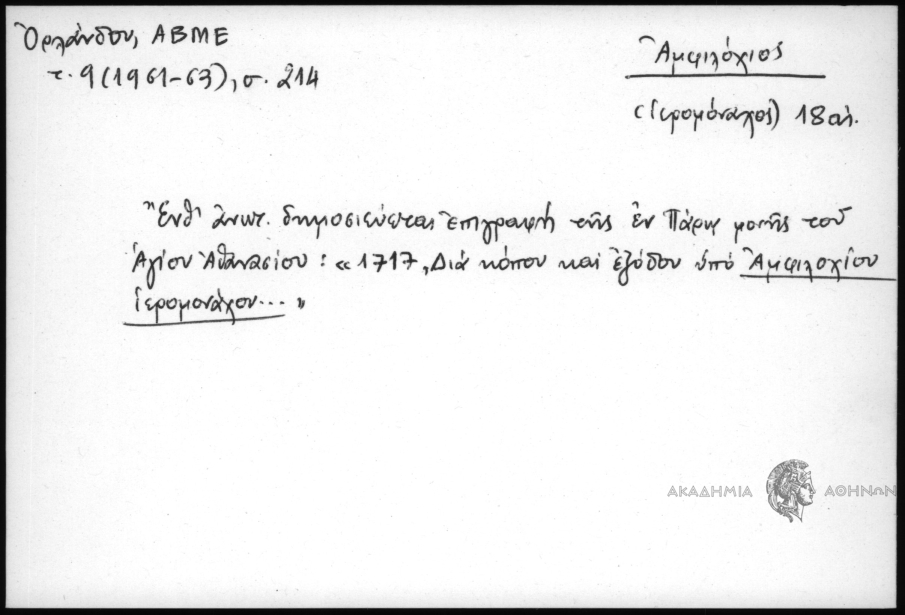 Ὀρλάνδου, ΑΒΜΕ
τ. 9 (1961-63), σ. 214
Ἀμφιλόχιος
(Ἱερομόναχος) 18 αἰ.
Ἔνθ' ἀνωτ. δημοσιεύεται ἐπιγραφὴ τῆς ἐν Πάρῳ μονῆς τοῦ
Ἁγίου Ἀθανασίου : « 1717, Διὰ κόπου καὶ ἐξόδου ὑπὸ Ἀμφιλοχίου
Ἱερομονάχου... »
ΑΚΑΔΗΜΙΑ ΑΘΗΝΩΝ